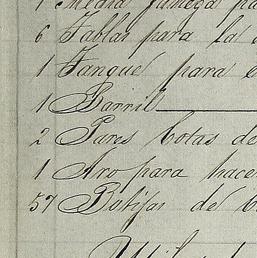 1 Media fanega pa
6 Tablas para la
1 Tanque para
1 Barril
2 Pares botas de
1 Aro para hacer
57 Botijas de